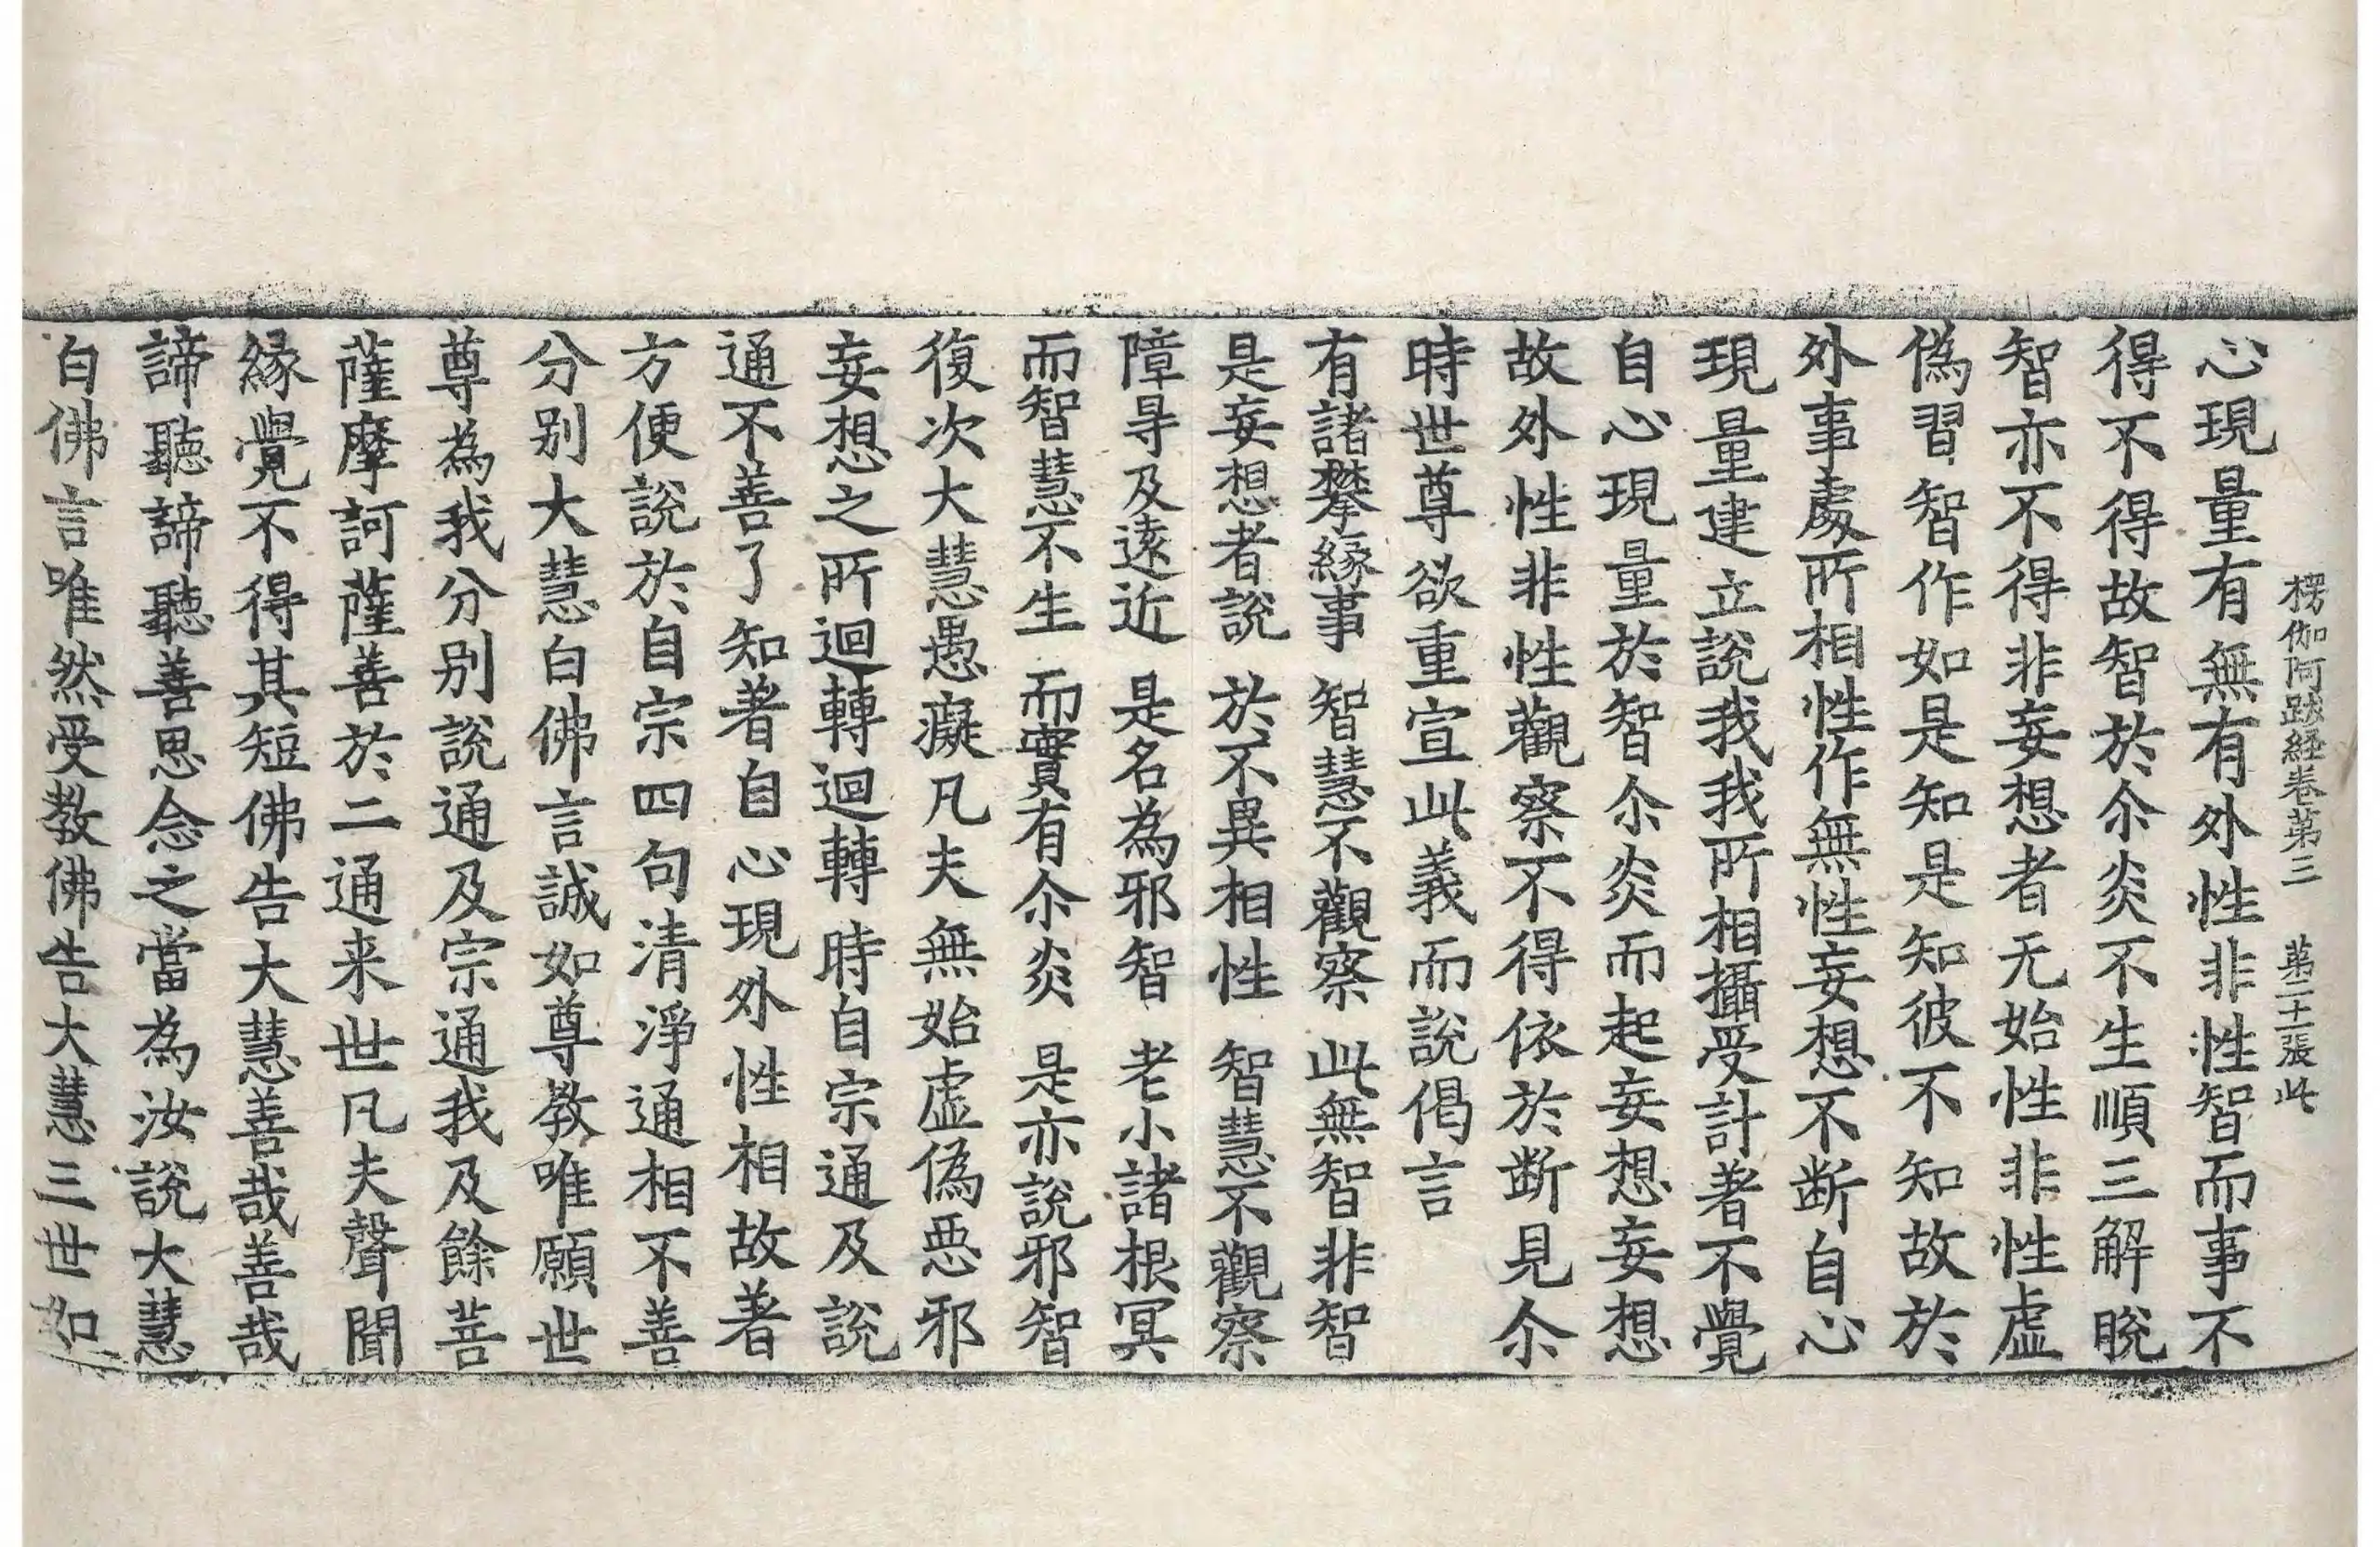 楞伽阿跋経卷第三　第二十一張　此
心現量有無有外性非性智而事不
得不得故智於尒炎不生順三解脫
智亦不得非妄想者无始性非性虛
偽習智作如是知是知彼不知故於
外事處所相性作無性妄想不斷自心
現量建立說我我所相攝受計著不覺
自心現量於智尒炎而起妄想妄想
故外性非性觀察不得依於斷見尒
時世尊欲重宣此義而說偈言
有諸攀緣事　智慧不觀察　此無智非智
是妄想者說　於不異相性　智慧不觀察
障㝵及遠近　是名為邪智　老小諸根冥
而智慧不生　而實有尒炎　是亦說邪智
復次大慧愚癡凡夫無始虛偽惡邪
妄想之所迴轉迴轉時自宗通及說
通不善了知著自心現外性相故著
方便說於自宗四句清淨通相不善
分別大慧白佛言誠如尊教唯願世
尊為我分別說通及宗通我及餘菩
薩摩訶薩善於二通来世凡夫聲聞
緣覺不得其短佛告大慧善哉善哉
諦聽諦聽善思念之當為汝說大慧
白佛言唯然受教佛告大慧三世如